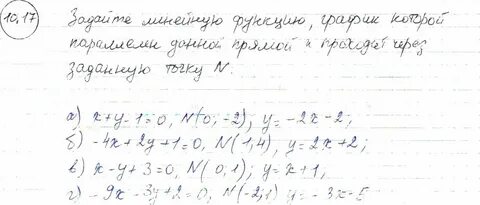 10.17 Задайте линейную функцию, график которой
параллелен данной прямой и проходит через
заданную точку N.
а) x+y-1=0, N(0,-2); y=-2x-2;
б) -4x+2y+1=0, N(1,4), y=2x+2;
в) x-y+3=0, N(0;1); y=x+1,
г) -9x-3y+2=0, N(-2;1) y=-3x-5